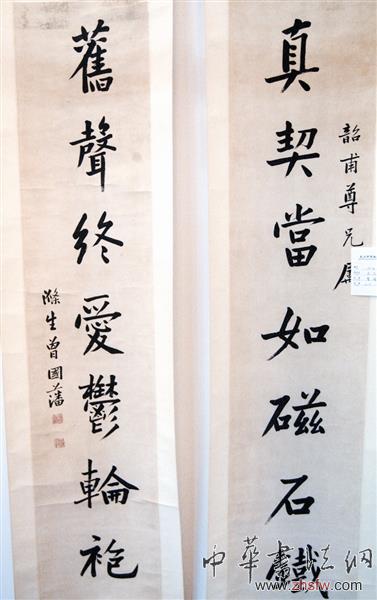 韶甫尊兄屬
真契當如磁石鐵
舊聲終愛鬱輪袍
滌生曾國藩
中華書法網
www.zhsfw.com